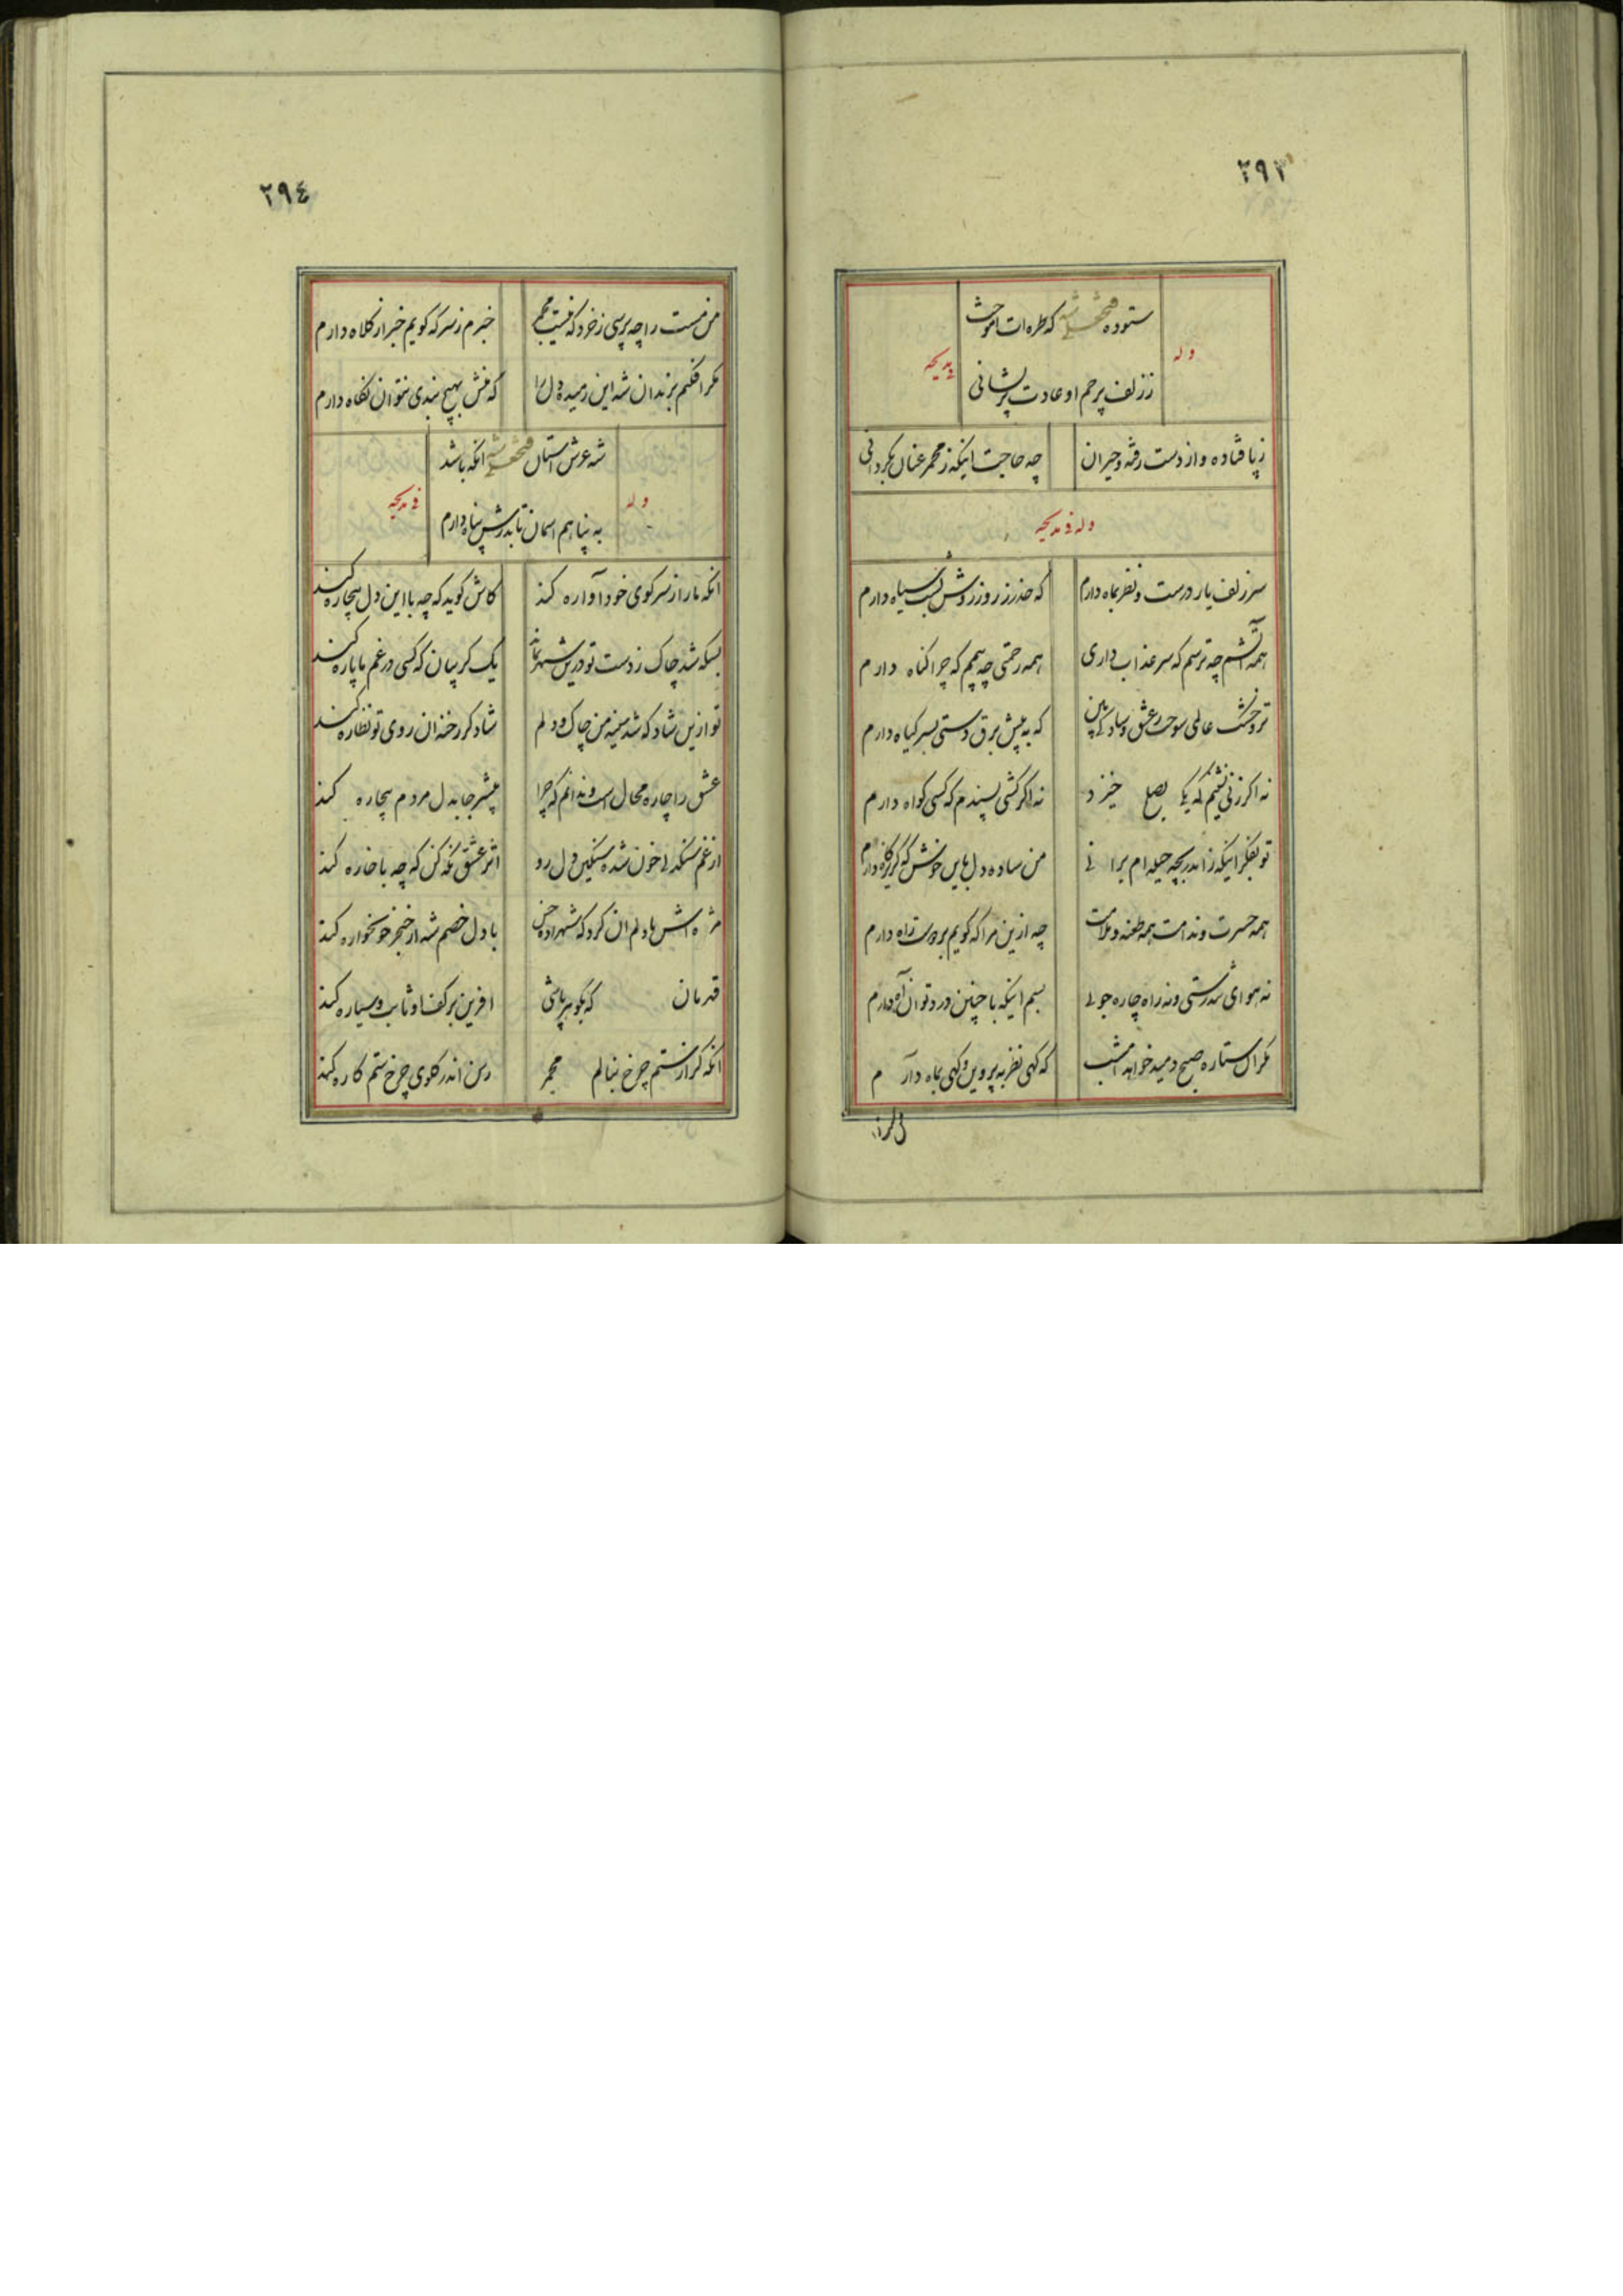 ۲۹۳
ستوده فتحعلی شه که طره ات آموخت
وله
فی مدیحه
ز زلف پرچم او عادت پریشانی
ز پا فتاده و از دست رفته و حیران
چه حاجت اینکه ز مجمر عنان بگردانی
وله فی مدیحه
سر زلف یار در دست و نظر بماه دارم
که حذر ز روز روشن بشب سیاه دارم
همه آتشم چه ترسم که سر عذاب داری
همه رحمتی چه بیچم که چرا گناه دارم
تر و خشک عالمی سوخت ز عشق و سادگی بین
که به پیش برق دستی بسر گیاه دارم
نه اگر زنی نشینم که یکی بصلح خیزد
نه اگر کشی پسندم که کسی گواه دارم
تو بفکر اینکه زاندر بچه حیله ام برانی
من ساده دل باین خوش که گریزگاه دارم
همه حسرت و ندامت همه طعنه و ملامت
چه ازین مرا که گویم بر دوست راه دارم
نه هوای تندرستی و نه راه چاره جوئی
بسم اینکه با چنین درد توان آه دارم
مگر آن ستاره صبح دمید خواهد امشب
که گهی نظر به پروین و گهی بماه دارم
۲۹۴
من مست را چه پرسی ز خرد که نیست مجمر
خبرم ز سر که گویم خبر از کلاه دارم
مگر افکنم بزندان شه این رمیده دل را
که منش بهیچ بندی نتوان نگاه دارم
شه عرش آستان فتحعلی شه آنکه باشد
وله
فی مدیحه
به پناهم آسمان تا بدرش پناه دارم
آنکه ما را ز سر کوی خود آواره کند
کاش گوید که چه با این دل بیچاره کند
بسکه شد چاک ز دست تو درین شهر نماند
یک گریبان که کسی در غم ما پاره کند
تو ازین شاد که شد سینه من چاک و دلم
شاد کز رخنه آن روی تو نظاره کند
عشق را چاره محال است و ندانم که چرا
بیشتر جا بدل مردم بیچاره کند
از غم سنگدلی خون شده سنگین دل رو
اثر عشق نگه کن که چه با خاره کند
مژه اش با دلم آن کرد که شهزاده حسن
با دل خصم شه از خنجر خونخواره کند
قهرمان که بگوهرپاشی
آفرین بر کف او ثابت و سیاره کند
آنکه گر از ستم چرخ بنالم مجمر
رسن اندر گلوی چرخ ستم کاره کند